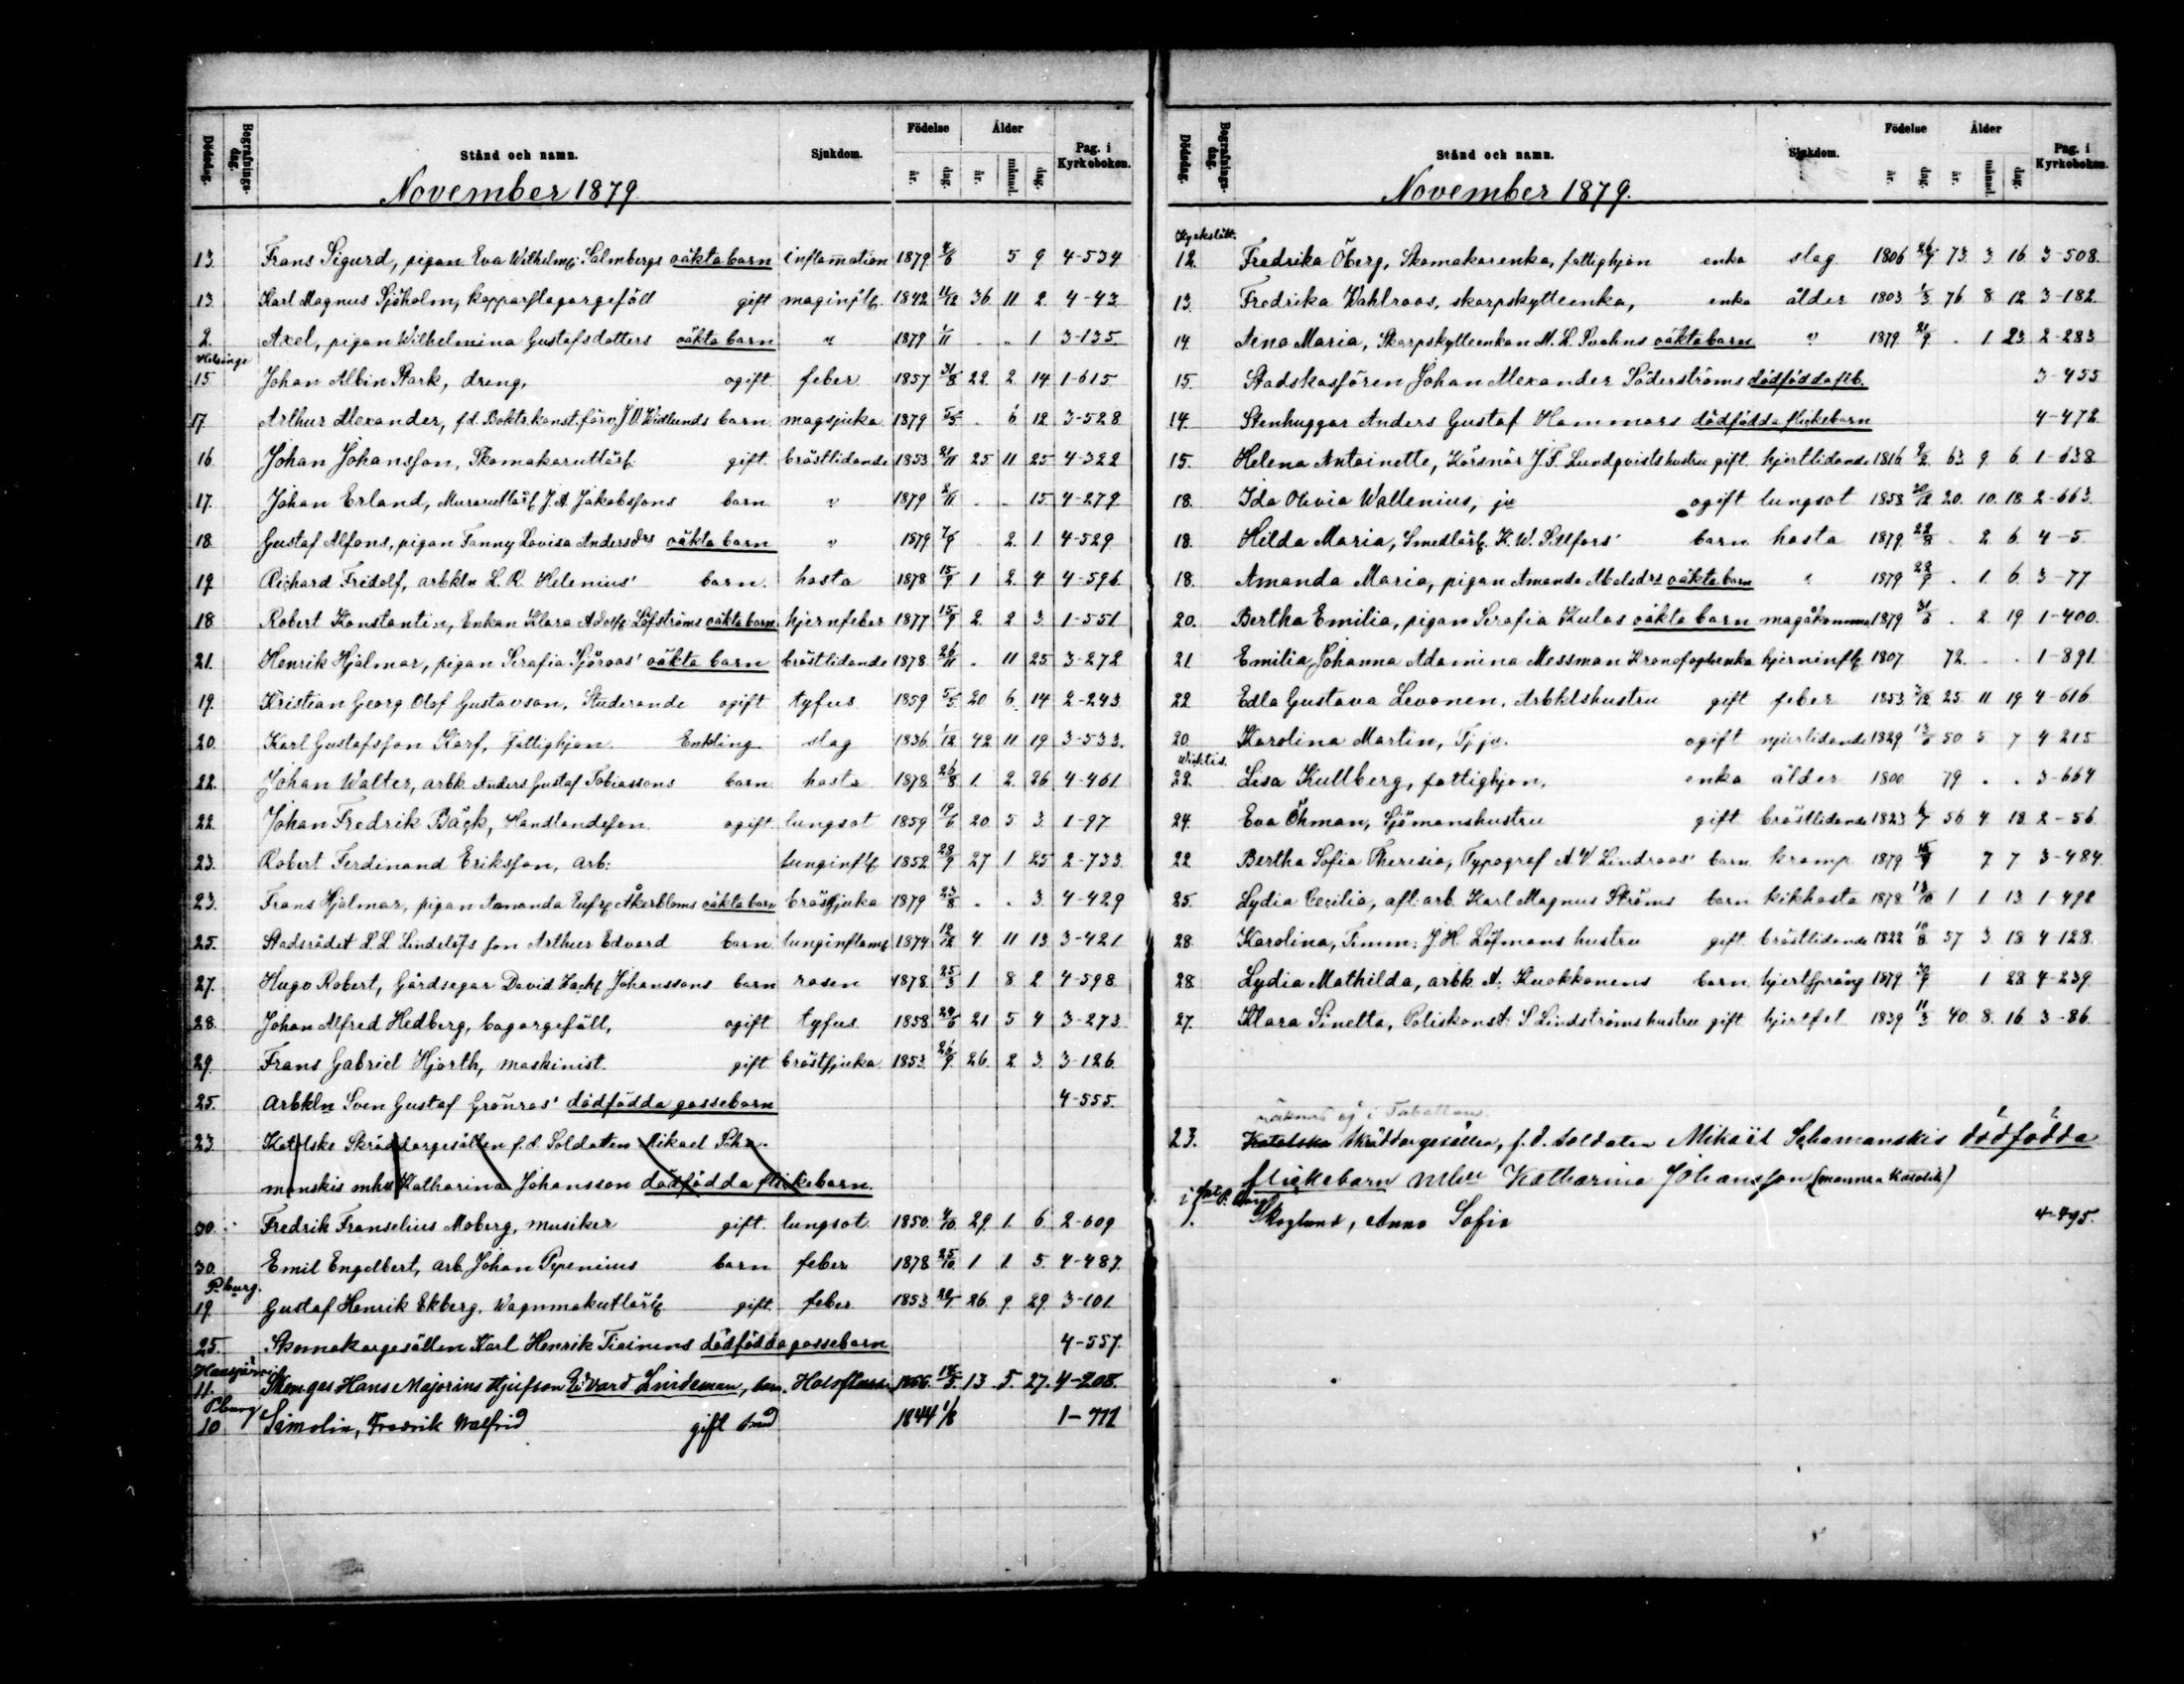 Dödsdag. Begrafnings-dag. Stånd och namn. Sjukdom. Födelse år. dag. Ålder år. månad. dag. Pag. i Kyrkoboken.
November 1879
13. Frans Sigurd, pigan Eva Wilhelmas Salmbergs oäkta barn inflamation 1879 4/6 5 9 4-534
13. Karl Magnus Sjöholm, kopparslagargesäll gift maginfl. 1842 11/12 36 11 2 4-43
2. Axel, pigan Wilhelmina Gustafsdotters oäkta barn " 1879 1/11 . . 1 3-135
Helsinge
15 Johan Albin Stark, dreng, ogift feber 1857 31/8 22 2 14 1-615
17 Arthur Alexander, f.d. Boktr.konst.förv. J. V. Widlunds barn magsjuka 1879 5/5 . 6 12 3-528
16 Johan Johansson, Skomakarutlärl. gift bröstlidande 1853 21/11 25 11 25 4-322
17. Johan Erland, Murarutlärl. J. A. Jakobssons barn " 1879 2/11 . . 15 4-279
18 Gustaf Alfons, pigan Fanny Lovisa Andersdrs oäkta barn " 1879 7/9 . 2 1 4-529
19 Richard Fridolf, arbkln L. R. Helenius' barn hosta 1878 15/9 1 2 4 4-596
18 Robert Konstantin, Enkan Klara Adolf. Löfströms oäkta barn hjernfeber 1877 15/9 2 2 3 1-551
21. Henrik Hjalmar, pigan Serafia Sjöroos' oäkta barn bröstlidande 1878 26/11 . 11 25 3-272
19. Kristian Georg Olof Gustavson, Studerande ogift tyfus 1859 5/5 20 6 14 2-243
20. Karl Gustafsson Karf, Fattighjon. Enkling slag 1836 1/12 42 11 19 3-533.
22. Johan Walter, arbk. Anders Gustaf Tobiassons barn hosta 1878 26/8 1 2 26 4-461
22. Johan Fredrik Bäck, Handlandeson ogift lungsot 1859 19/6 20 5 3 1-97
23. Robert Ferdinand Eriksson, arb: lunginfl. 1852 28/9 27 1 25 2-733
23. Frans Hjalmar, pigan Amanda Eufr. Åkerbloms oäkta barn bröstsjuka 1879 23/8 . . 3 4-429
25. Stadsrådet L. L. Lindelöfs son Arthur Edvard barn lunginflam. 1874 12/12 4 11 13 3-421
27. Hugo Robert, Gårdsegar David Zach. Johanssons barn rosen 1878 25/3 1 8 2 4-598
28. Johan Alfred Hedberg, bagargesäll, ogift tyfus 1858 24/6 21 5 4 3-273
29. Frans Gabriel Hjorth, maskinist. gift bröstsjuka 1853 26/9 26 2 3 3-126
25. Arbkln Sven Gustaf Grönroos' dödfödda gossebarn 4-555.
23 Katolske Skräddargesällen f.d. Soldaten Mikael Scha-
manskis mhu Katharina Johansson dödfödda flickebarn.
30. Fredrik Franselius Moberg, musiker gift lungsot 1850 4/10 29 1 6 2-609
30. Emil Engelbert, arb. Johan Pepenius barn feber 1878 25/10 1 1 5 4-487
P.burg.
19 Gustaf Henrik Ekberg, Wagnmakutlärl. gift feber 1853 20/1 26 9 29 3-101
25. Skomakargesällen Karl Henrik Tiainens dödfödda gossebarn 4-557.
11. Hans Majorins Edvard Lindeman, barn 1866 13 5 27 4-208.
P.burg
10 Simolin, Fredrik Walfrid gift 1844 1/8 1-772
Dödsdag. Begrafnings-dag. Stånd och namn. Sjukdom. Födelse år. dag. Ålder år. månad. dag. Pag. i Kyrkoboken.
November 1879.
Kyrkslätt.
12. Fredrika Öberg, Skomakarenka, fattighjon enka slag 1806 26/7 73 3 16 3-508.
13. Fredrika Wahlroos, skarpskytteenka, enka ålder 1803 1/3 76 8 12 3-182
14. Aina Maria, Skarpskytteenkan M. L. Svahns oäkta barn " 1879 21/9 . 1 23 2-283
15. Stadskasören Johan Alexander Söderströms dödfödda flb. 3-455
14. Stenhuggar Anders Gustaf Hammars dödfödda flickebarn 4-472
15. Helena Antoinette, Körsnär J. F. Lundqvists hustru gift hjertlidande 1816 9/2 63 9 6 1-638
18. Ida Olivia Wallenius, ju ogift lungsot 1858 30/12 20. 10. 18 2-663
18. Hilda Maria, Smedlärl. K. W. Sillfors' barn hosta 1879 22/8 . 2 6 4-5
18. Amanda Maria, pigan Amanda Abelsdrs oäkta barn " 1879 22/9 . 1 6 3-77
20. Bertha Emilia, pigan Serafia Kulas oäkta barn magåkomma 1879 31/8 . 2 19 1-400.
21 Emilia Johanna Adamina Messman Kronofogdenka hjerninfl. 1807 72 . . 1-891
22 Edla Gustava Levonen, Arbklshustru gift feber 1853 3/12 25 11 19 4-616
20 Karolina Martin, Tj.ju. ogift njurlidande 1829 13/6 50 5 7 4-215
Wichtis.
22. Lisa Kullberg, fattighjon, enka ålder 1800 79 . . 3-664
24. Eva Öhman, Sjömanshustru gift bröstlidande 1823 6/7 56 4 18 2-56
22 Bertha Sofia Theresia, Typograf A. V. Lindroos' barn kramp 1879 7 7 3-484
25. Lydia Cecilia, afl. arb. Karl Magnus Ströms barn kikhosta 1878 12/10 1 1 13 1-492
28 Karolina, Timm: J. H. Löfmans hustru gift bröstlidande 1822 10/8 57 3 18 4-128.
28 Lydia Mathilda, arbk. A. Kuokkanens barn hjertsprång 1879 30/9 1 28 4-239
27. Klara Sinetta, Poliskonst: S. Lindströms hustru gift hjertfel 1839 11/3 40 8 16 3-86
räknas ej i Tabellen.
23. Katolska Skräddargesällen, f.d. soldaten Mikaël Schamanskis dödfödda
flickebarn mhu Katharina Johansson (mannen Katolik)
Skoglund, Anna Sofia 4-495.